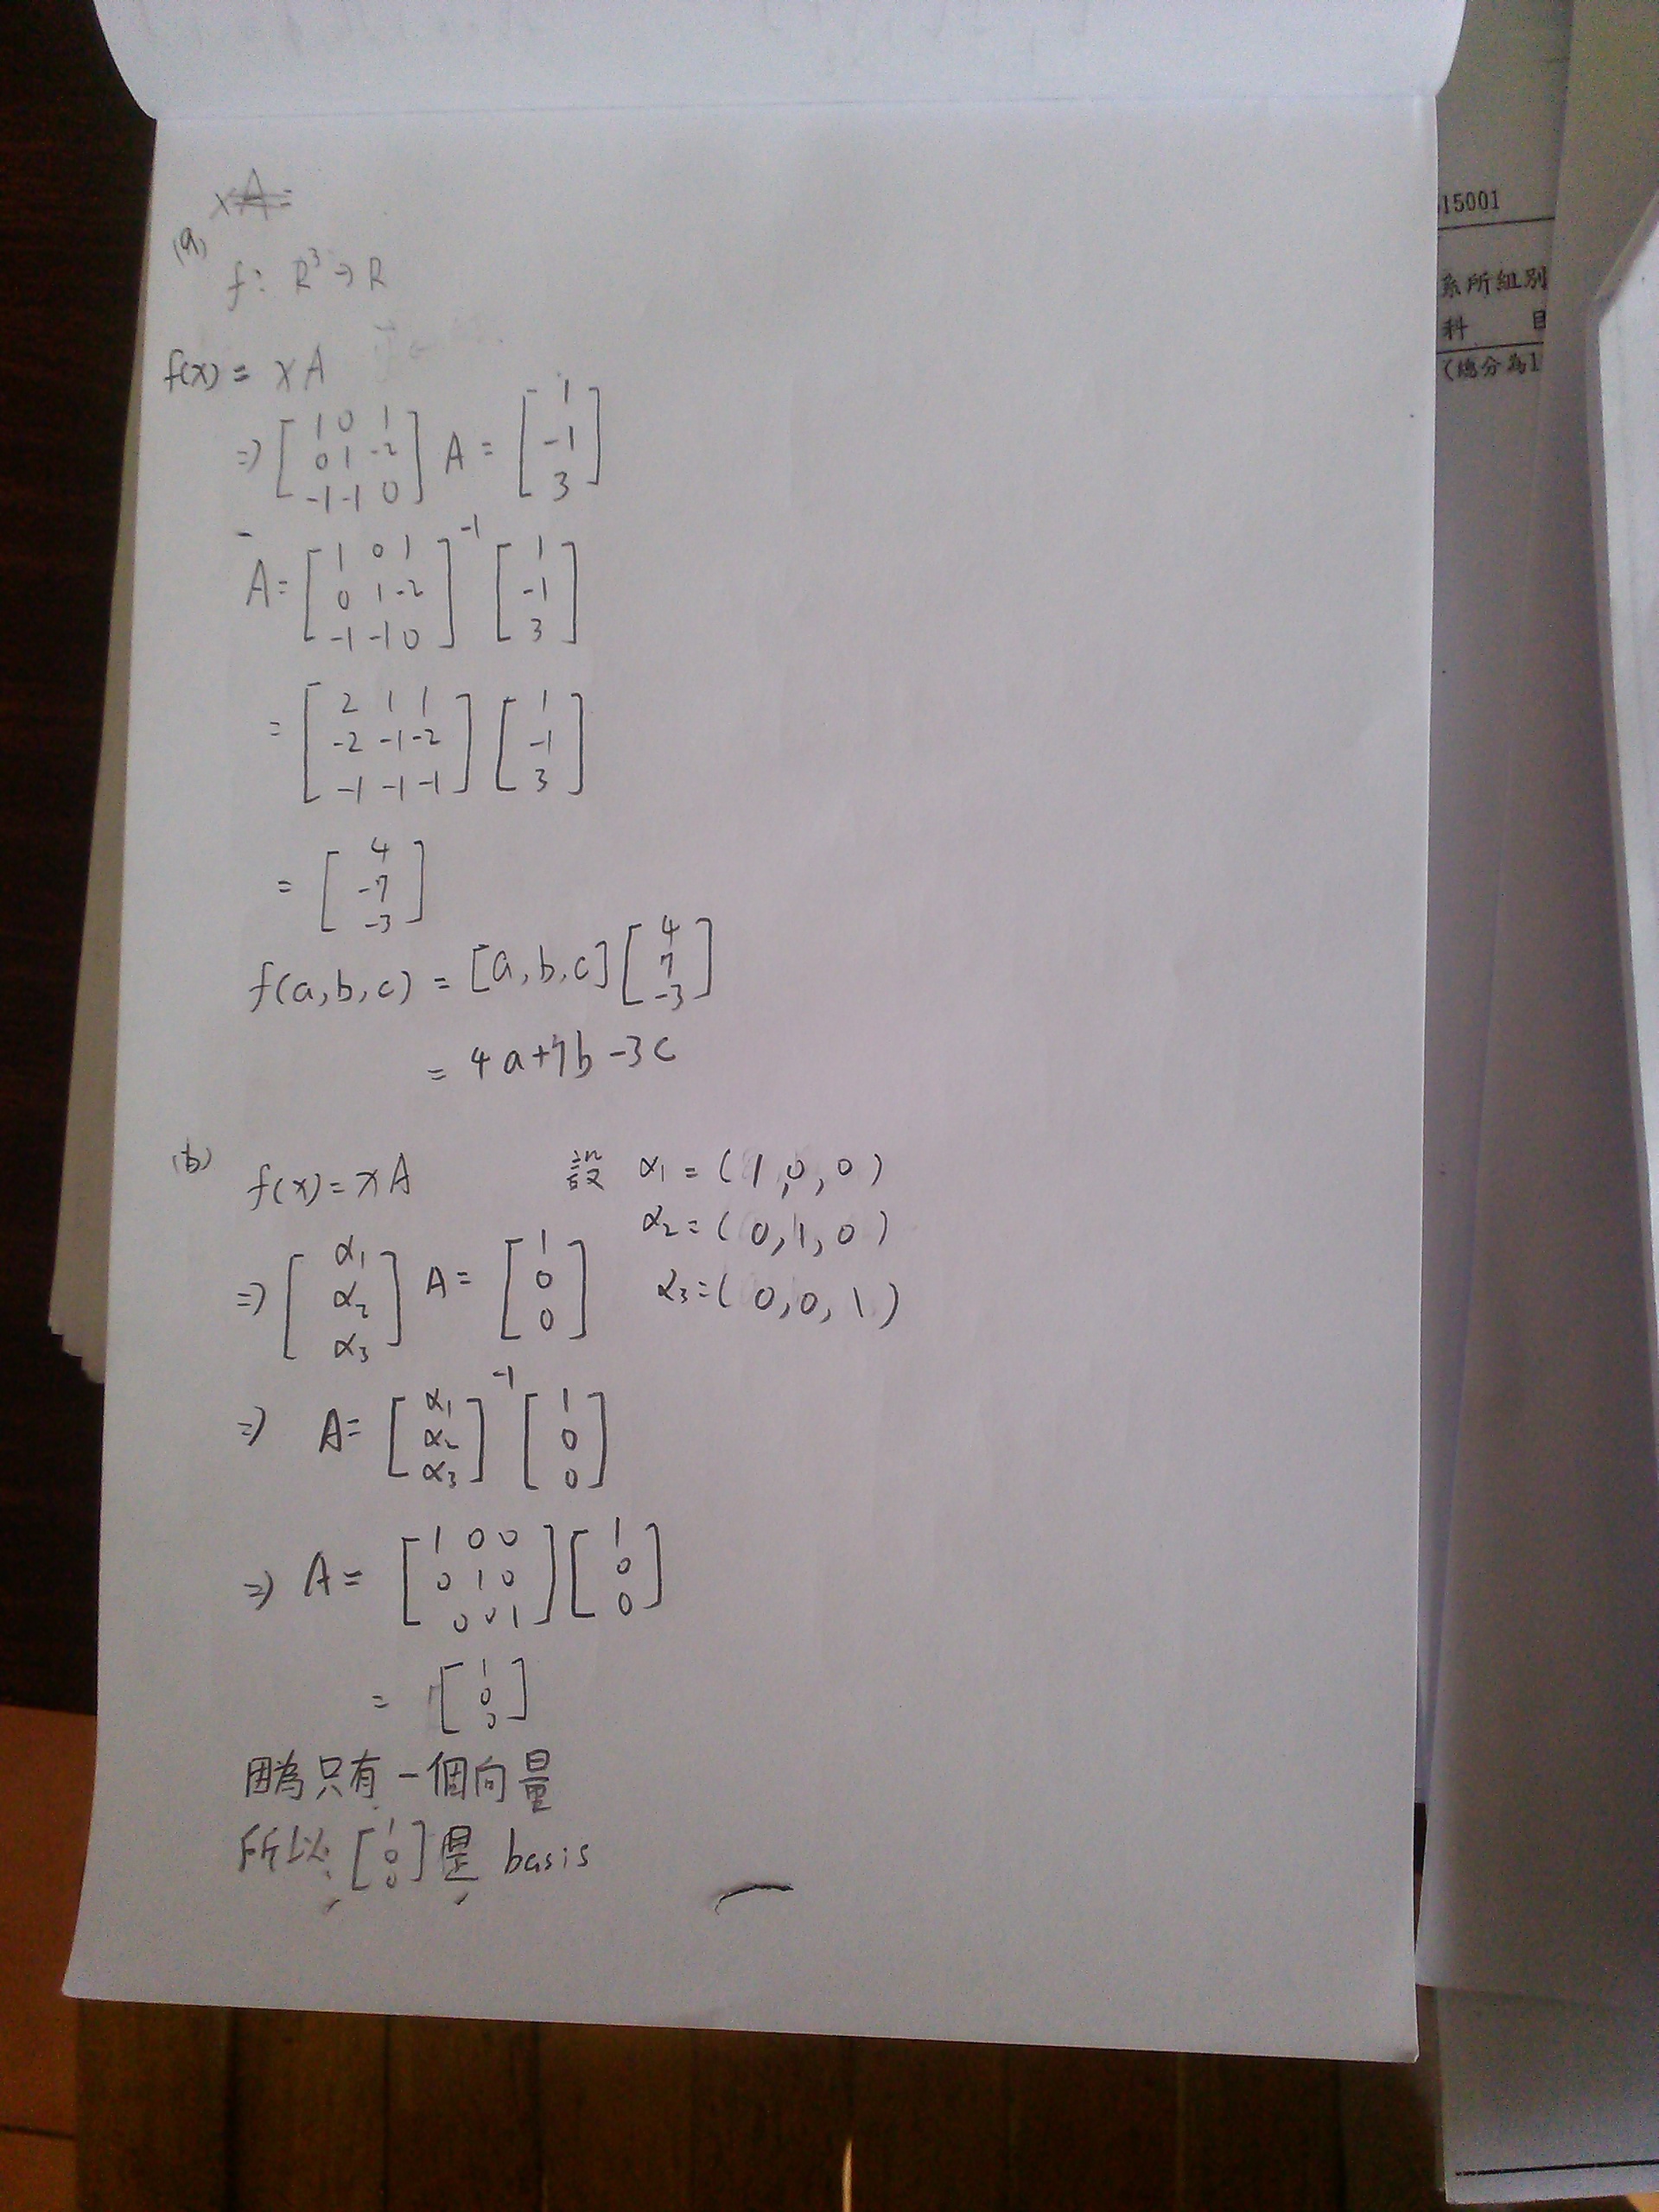 xA=
(a)
f: R³ → R
f(x) = xA
⇒ [1 0 1; 0 1 -2; -1 -1 0] A = [1; -1; 3]
A = [1 0 1; 0 1 -2; -1 -1 0]⁻¹ [1; -1; 3]
= [2 1 1; -2 -1 -2; -1 -1 -1] [1; -1; 3]
= [4; -7; -3]
f(a,b,c) = [a,b,c] [4; 7; -3]
= 4a+7b-3c
(b)
f(x) = xA
⇒ [α₁; α₂; α₃] A = [1; 0; 0]
設 α₁ = (1,0,0)
α₂ = (0,1,0)
α₃ = (0,0,1)
⇒ A = [α₁; α₂; α₃]⁻¹ [1; 0; 0]
⇒ A = [1 0 0; 0 1 0; 0 0 1] [1; 0; 0]
= [1; 0; 0]
因為只有一個向量
所以 [1; 0; 0] 是 basis
15001
系所組別
科 目
(總分為1